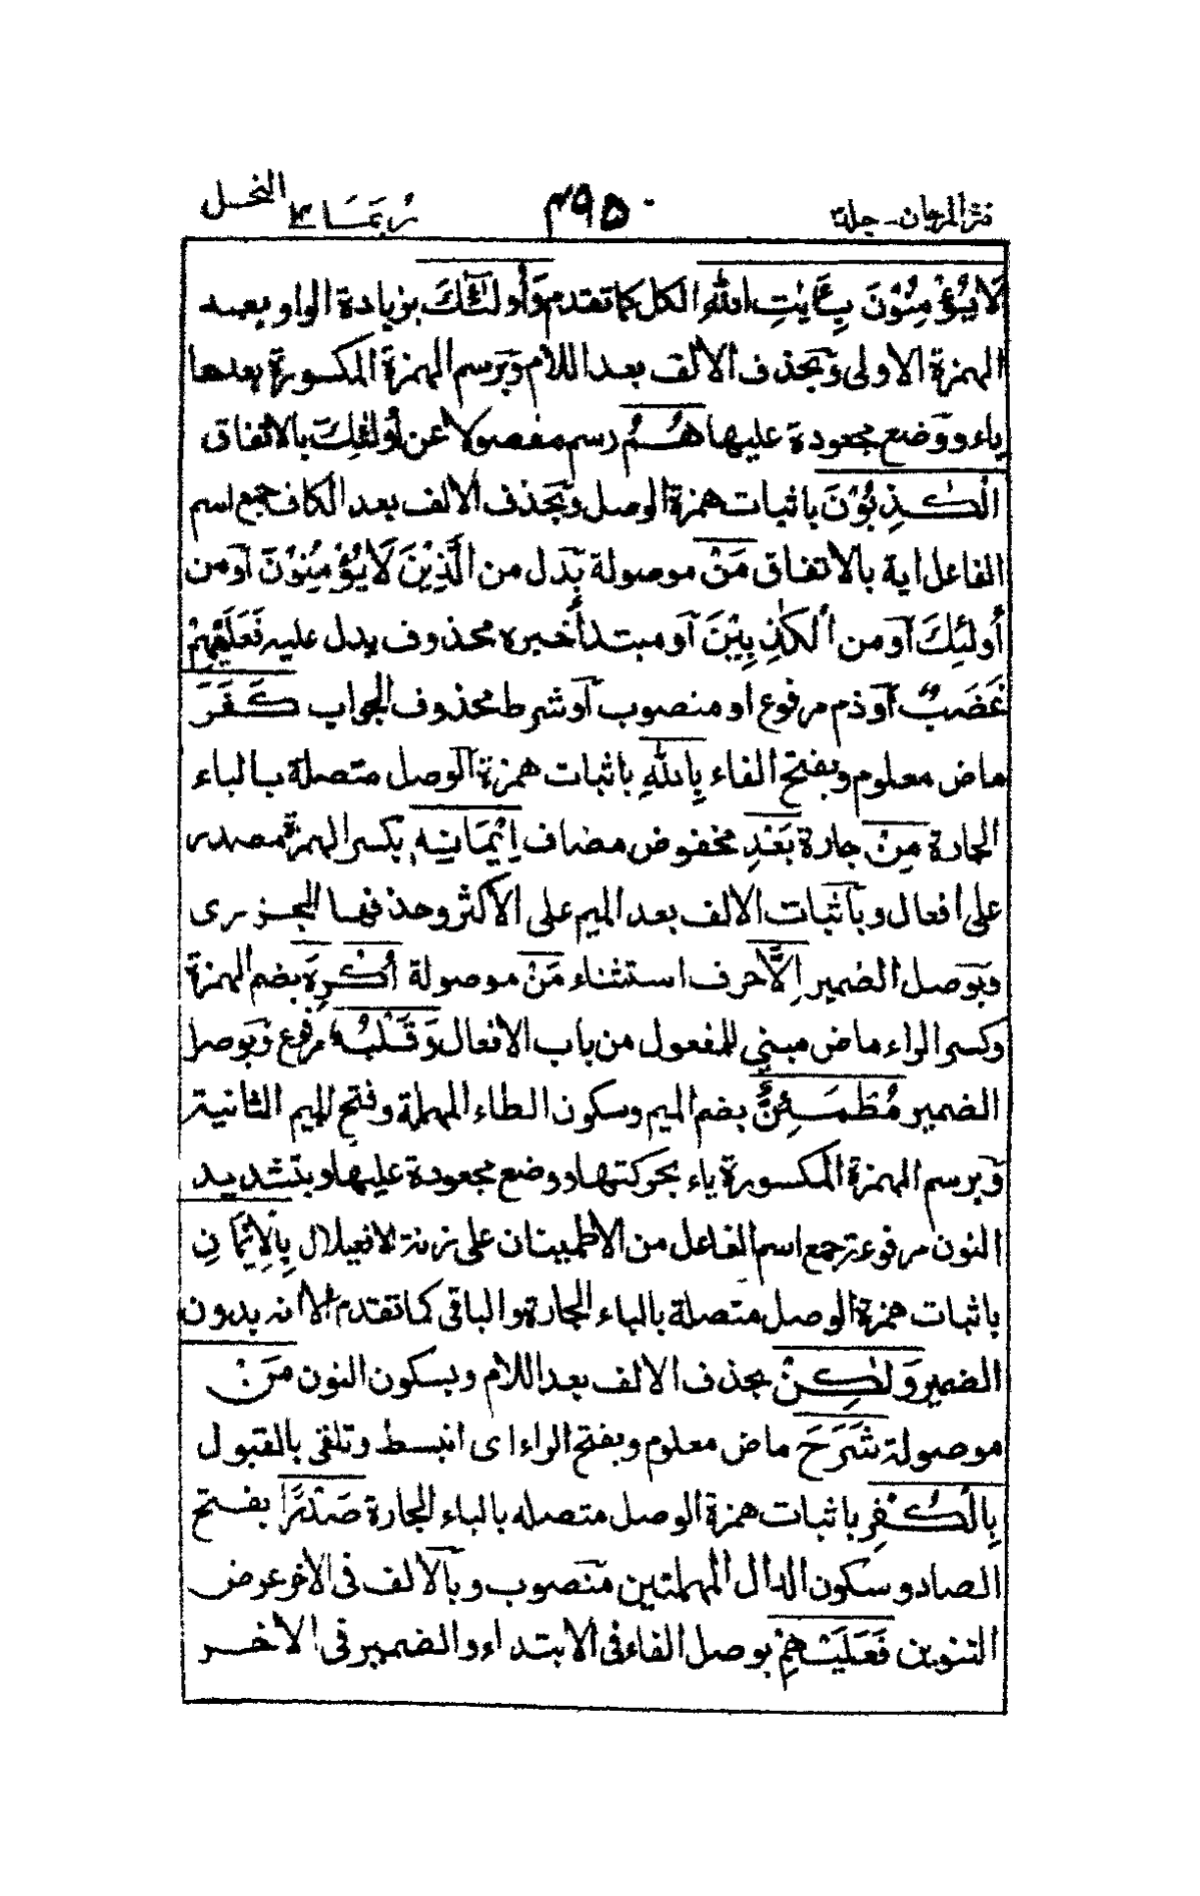 نثر المرجان - جلد ۴۹۵۰ رُبَمَا ١٤ النحل
لَا يُؤْمِنُوْنَ بِـَٔايٰتِ اللّٰهِ الكل كما تقدم وَأُولٰٓئِكَ بزيادة الواو بعد
الهمزة الاولى وبحذف الألف بعد اللام وبرسم الهمزة المكسورة بعدها
ياء ووضع مجعودة عليها هُـمُ رسم مفصولا عن أولئِكَ بالاتفاق
الْكٰـذِبُوْنَ باثبات همزة الوصل وبحذف الالف بعد الكاف جمع اسم
الفاعل اية بالاتفاق مَنْ موصولة بدل من الَّذِيْنَ لَا يُؤْمِنُوْنَ او من
أُولئِكَ او من الْكٰذِبِيْنَ او مبتدأ خبره محذوف يدل عليه فَعَلَيْهِمْ
غَضَبٌ او ذم مرفوع او منصوب او شرط محذوف الجواب كَـفَـرَ
ماض معلوم وبفتح الفاء بِاللّٰهِ باثبات همزة الوصل متصلة بـالباء
الجارة مِنْ جارة بَعْدِ مخفوض مضاف اِيْمَانِهٖ بكسر الهمزة مصدر
على افعال وباثبات الالف بعد الميم على الأكثر وحذفهـا الجـزرى
وبوصل الضمير اِلَّا حرف استثناء مَنْ موصولة اُكْـرِهَ بضم الهمزة
وكسر الراء ماض مبني للمفعول من باب الافعال وَقَـلْبُهٗ مرفوع وبوصل
الضمير مُطْمَـئِنٌّ بضم الميم وسكون الطاء المهملة وفتح الميم الثانية
وبرسم الهمزة المكسورة ياء بحركتها ووضع مجعودة عليها وبتشديد
النون مرفوعة جمع اسم الفاعل من الاطمينان على زنة الافعيلال بِالْاِيْمَانِ
باثبات همزة الوصل متصلة بالباء الجارة والباقى كما تقدم الا انه بدون
الضمير وَلٰكِنْ بحذف الالف بعد اللام وبسكون النون مَنْ
موصولة شَرَحَ ماض معلوم وبفتح الراء اى انبسط وتلقى بالقبول
بِالْكُـفْرِ باثبات همزة الوصل متصله بالباء الجارة صَدْرًا بفـتح
الصاد وسكون الدال المهملتين منصوب وبالالف فى الاخر عوض
التنوين فَعَلَيْـهِمْ بوصل الفاء فى الابتداء والضمير فى الاخـر